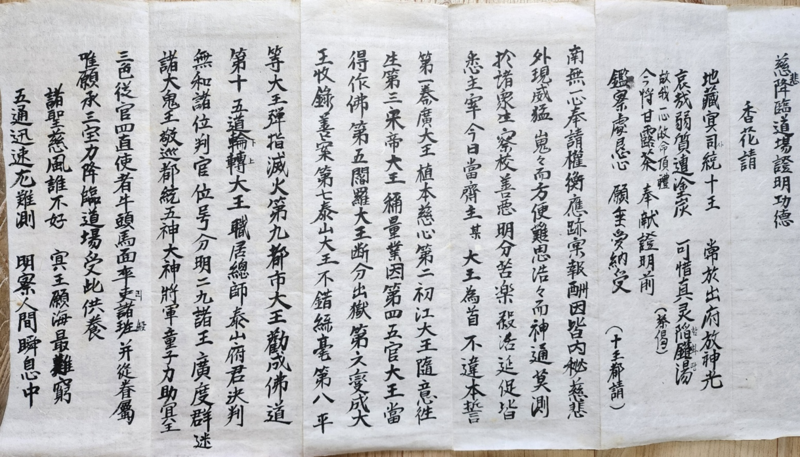 慈悲降臨道場證明功德
香花請
地藏寅司統十王 常放出府放神光
哀哉弱質遭塗炭 可惜真灵陷鑊湯
故我一心啟命頂禮
今將甘露茶 奉献證明前 （茶偈）
鑑察虔忌心 願垂受納受 （十王都請）
南無一心奉請權衡應跡宲報酬因皆内秘慈悲
外現威猛嵬々而方便難思浩々而神通莫測
於諸衆生察校善悪明分苦楽殺活延促皆
悉主宰今日當齊主某 大王為首 不違本誓
第一秦廣大王植本慈心第二初江大王隨意徃
生第三宋帝大王稱量業因第四五官大王當
得作佛第五閻羅大王断分出獄第六變成大
王收錄善案第七泰山大王不錯絲毫第八平
等大王彈指滅火第九都市大王勸成佛道
第十五道輪轉大王職居總師泰山俯君决判
無和諸位判官位号分明二九諸王廣度群迷
諸大鬼王敬巡都統五神大神將軍童子力助冥王
三色従官四直使者牛頭馬面率吏諸班并從眷屬
唯願承三宝力降臨道場受此供養
諸聖慈風誰不好 冥王願海最難窮
五通迅速尤難測 明察人間瞬息中